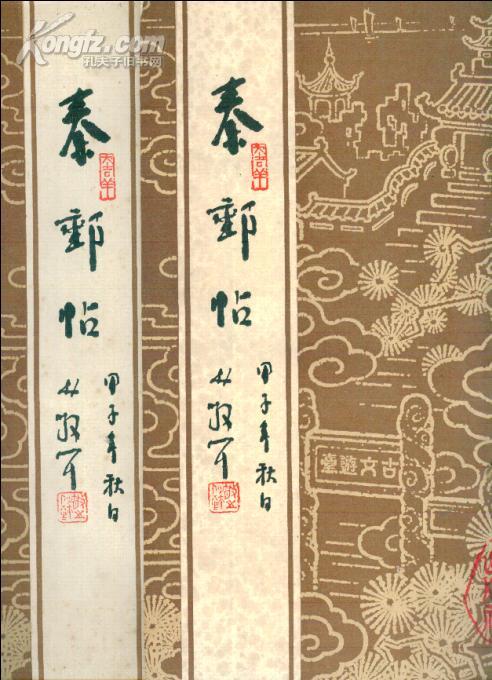 Kongfz.com
孔夫子旧书网
秦郵帖
大吉羊
甲子年秋日
林散耳
秦郵帖
大吉羊
甲子年秋日
林散耳
古文遊臺